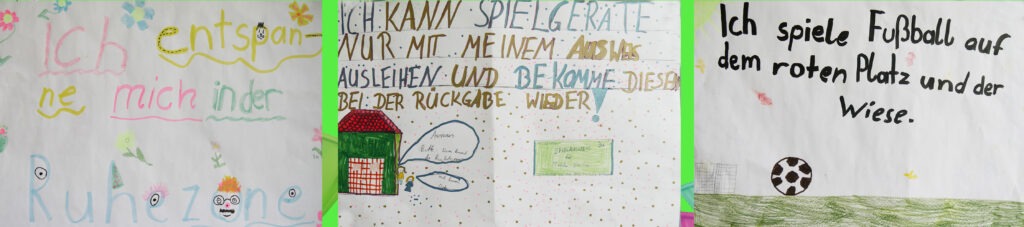 Ich entspan-
ne mich in der
Ruhezone
ICH KANN SPIELGERÄTE
NUR MIT MEINEM AUSWEIS
AUSLEIHEN UND BEKOMME DIESEN
BEI DER RÜCKGABE WIEDER!
Ich spiele Fußball auf
dem roten Platz und der
Wiese.